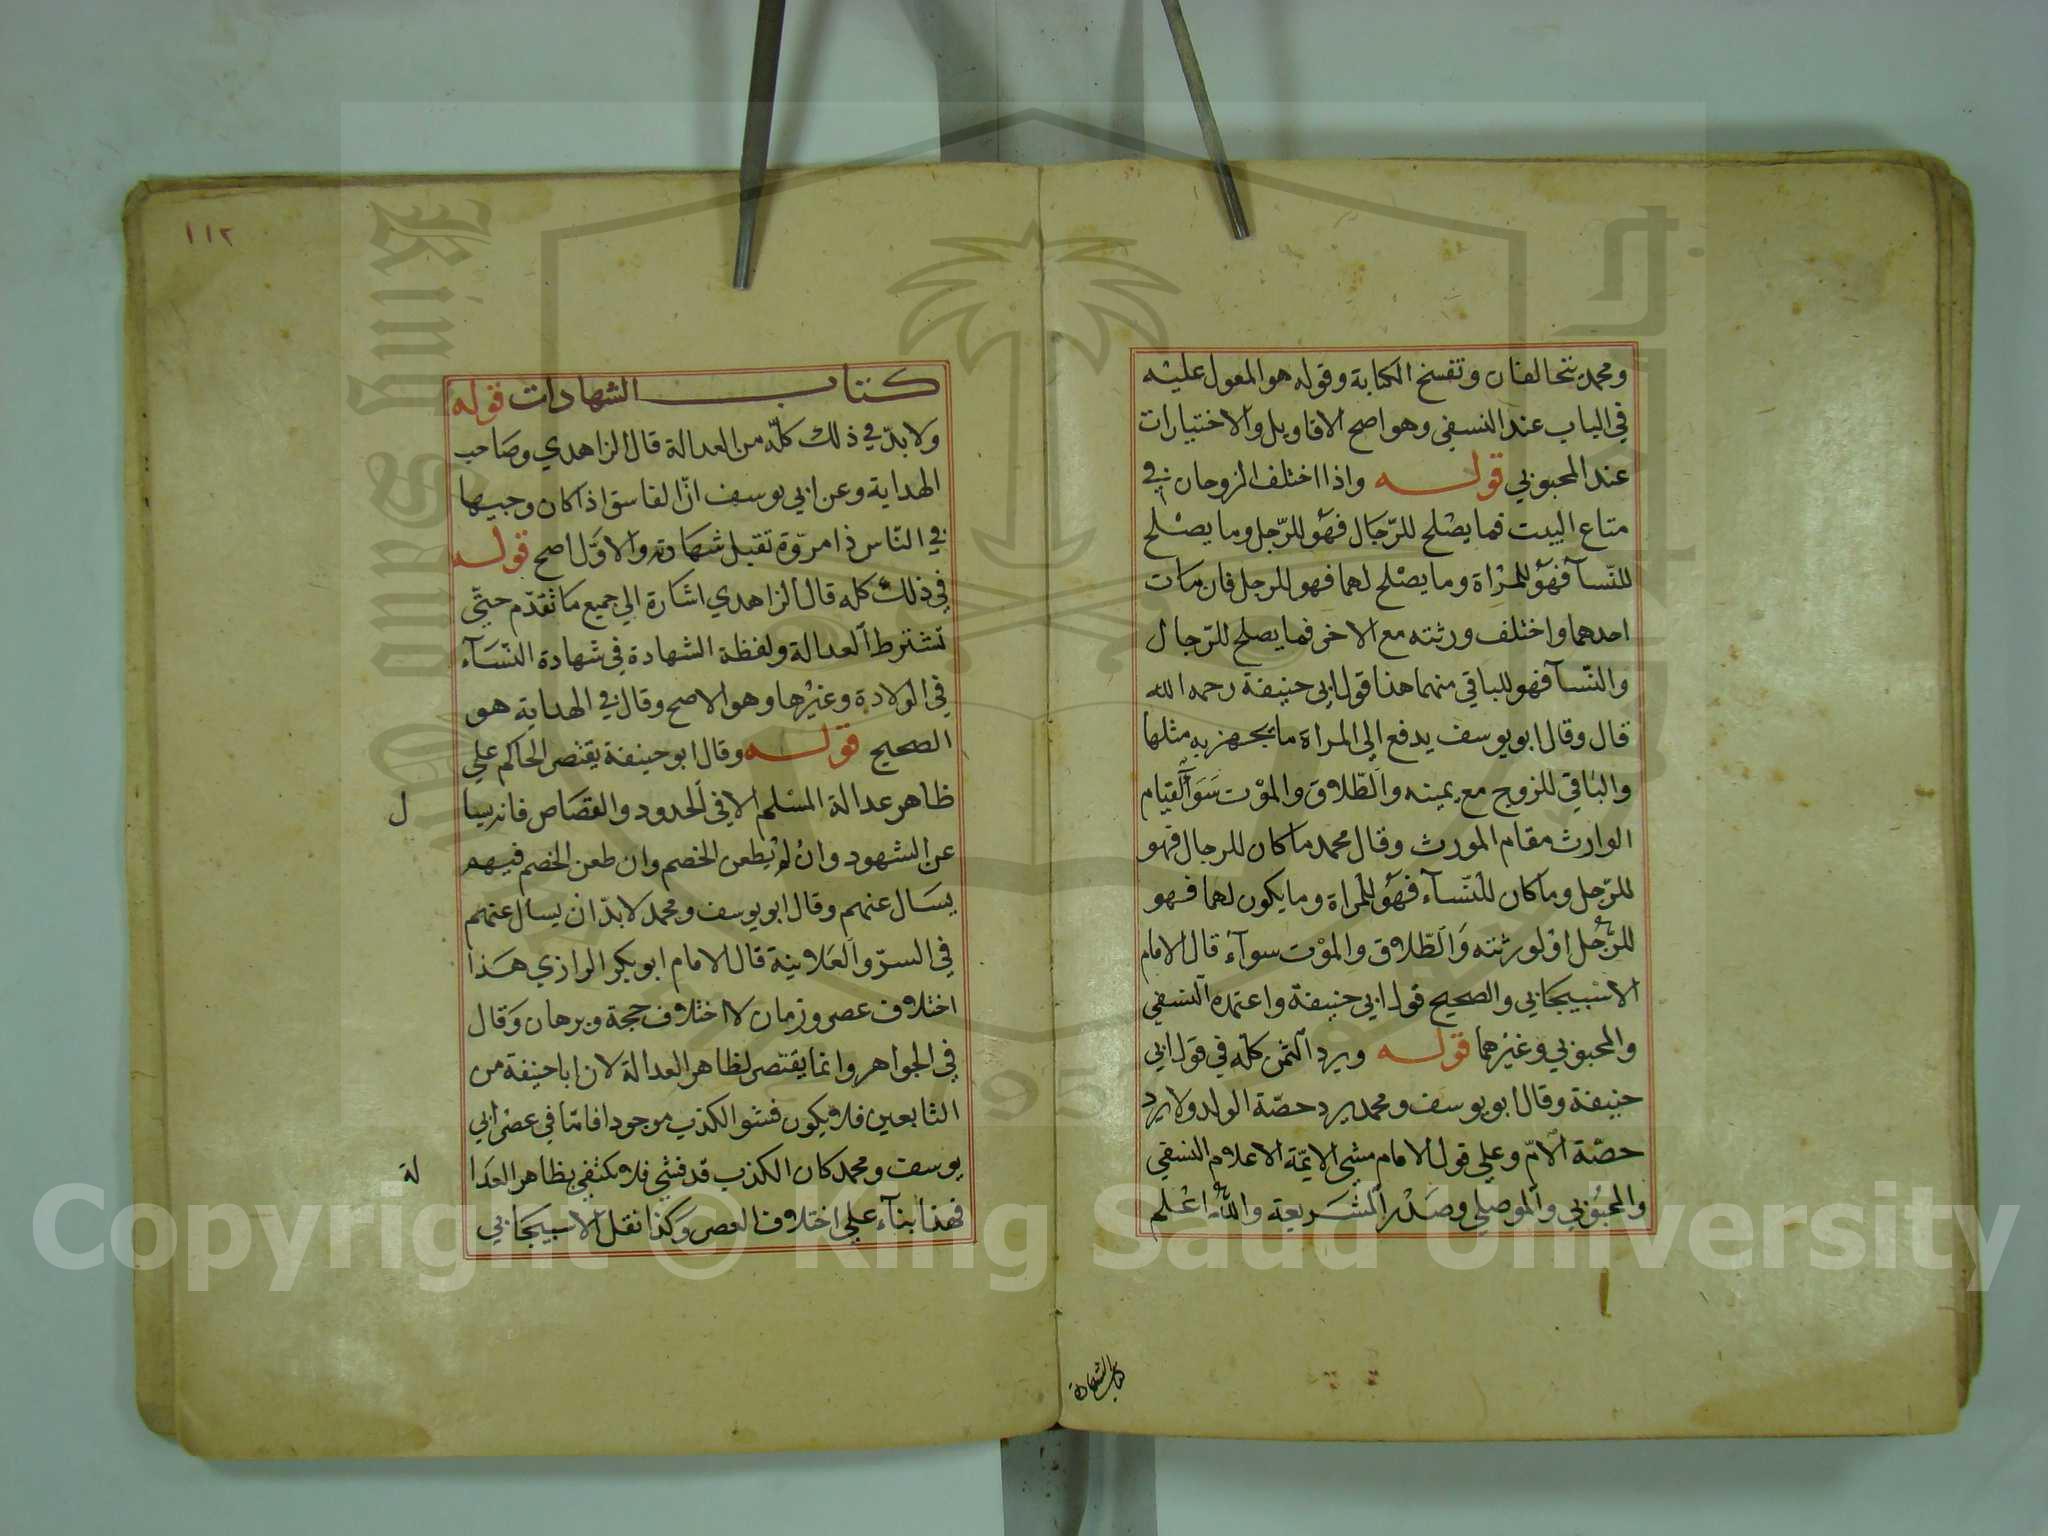 ومحمد يتحالفان وتفسخ الكتابة وقوله هو المعول عليه
في الباب عند النسفي وهو اصح الاقاويل والاختيارات
عند المحبوبي قوله واذا اختلف الزوجان في
متاع البيت فما يصلح للرجال فهو للرجل وما يصلح
للنسآ فهو للمراة وما يصلح لهما فهو للرجل فان مات
احدهما واختلف ورثته مع الاخر فما يصلح للرجال
والنسآ فهو للباقي منهما هذا قول ابي حنيفة رحمه الله
قال وقال ابو يوسف يدفع الي المراة ما يجهز به مثلها
والباقي للزوج مع يمينه والطلاق والموت سوآ لقيام
الوارث مقام المورث وقال محمد ما كان للرجال فهو
للرجل وما كان للنسآء فهو للمراة وما يكون لهما فهو
للرجل او لورثته والطلاق والموت سوآء قال الامام
الاسبيجابي والصحيح قول ابي حنيفة واعتمده النسفي
والمحبوبي وغيرهما قوله ويرد الثمن كله في قول ابي
حنيفة وقال ابو يوسف ومحمد يرد حصة الولد ولا يرد
حصة الام وعلي قول الامام مشي الايمة الاعلام النسفي
والمحبوبي والموصلي وصدر الشريعة والله اعلم
كتاب الشهادة
١١٢
كتاب الشهادات قوله
ولا بد في ذلك كله من العدالة قال الزاهدي وصاحب
الهداية وعن ابي يوسف ان الفاسق اذا كان وجيها
في الناس ذا مروة تقبل شهادته والاول اصح قوله
في ذلك كله قال الزاهدي اشارة الي جميع ما تقدم حتي
تشترط العدالة ولفظة الشهادة في شهادة النسآء
في الولادة وغيرها وهو الاصح وقال في الهداية هو
الصحيح قوله وقال ابو حنيفة يقتصر الحاكم علي
ظاهر عدالة المسلم الا في الحدود والقصاص فانه يسا
ل
عن الشهود وان لم يطعن الخصم وان طعن الخصم فيهم
يسال عنهم وقال ابو يوسف ومحمد لا بد ان يسال عنهم
في السر والعلانية قال الامام ابو بكر الرازي هذا
اختلاف عصر وزمان لا اختلاف حجة وبرهان وقال
في الجواهر وانما يقتصر لظاهر العدالة لان ابا حنيفة من
التابعين فلا يكون فشو الكذب موجودا فاما في عصر ابي
يوسف ومحمد كان الكذب قد فشي فلا يكتفي بظاهر العدا
لة
فهذا بنآء علي اختلاف العصر وكذا نقل الاسبيجابي
Copyright © King Saud University
King Saud
1957